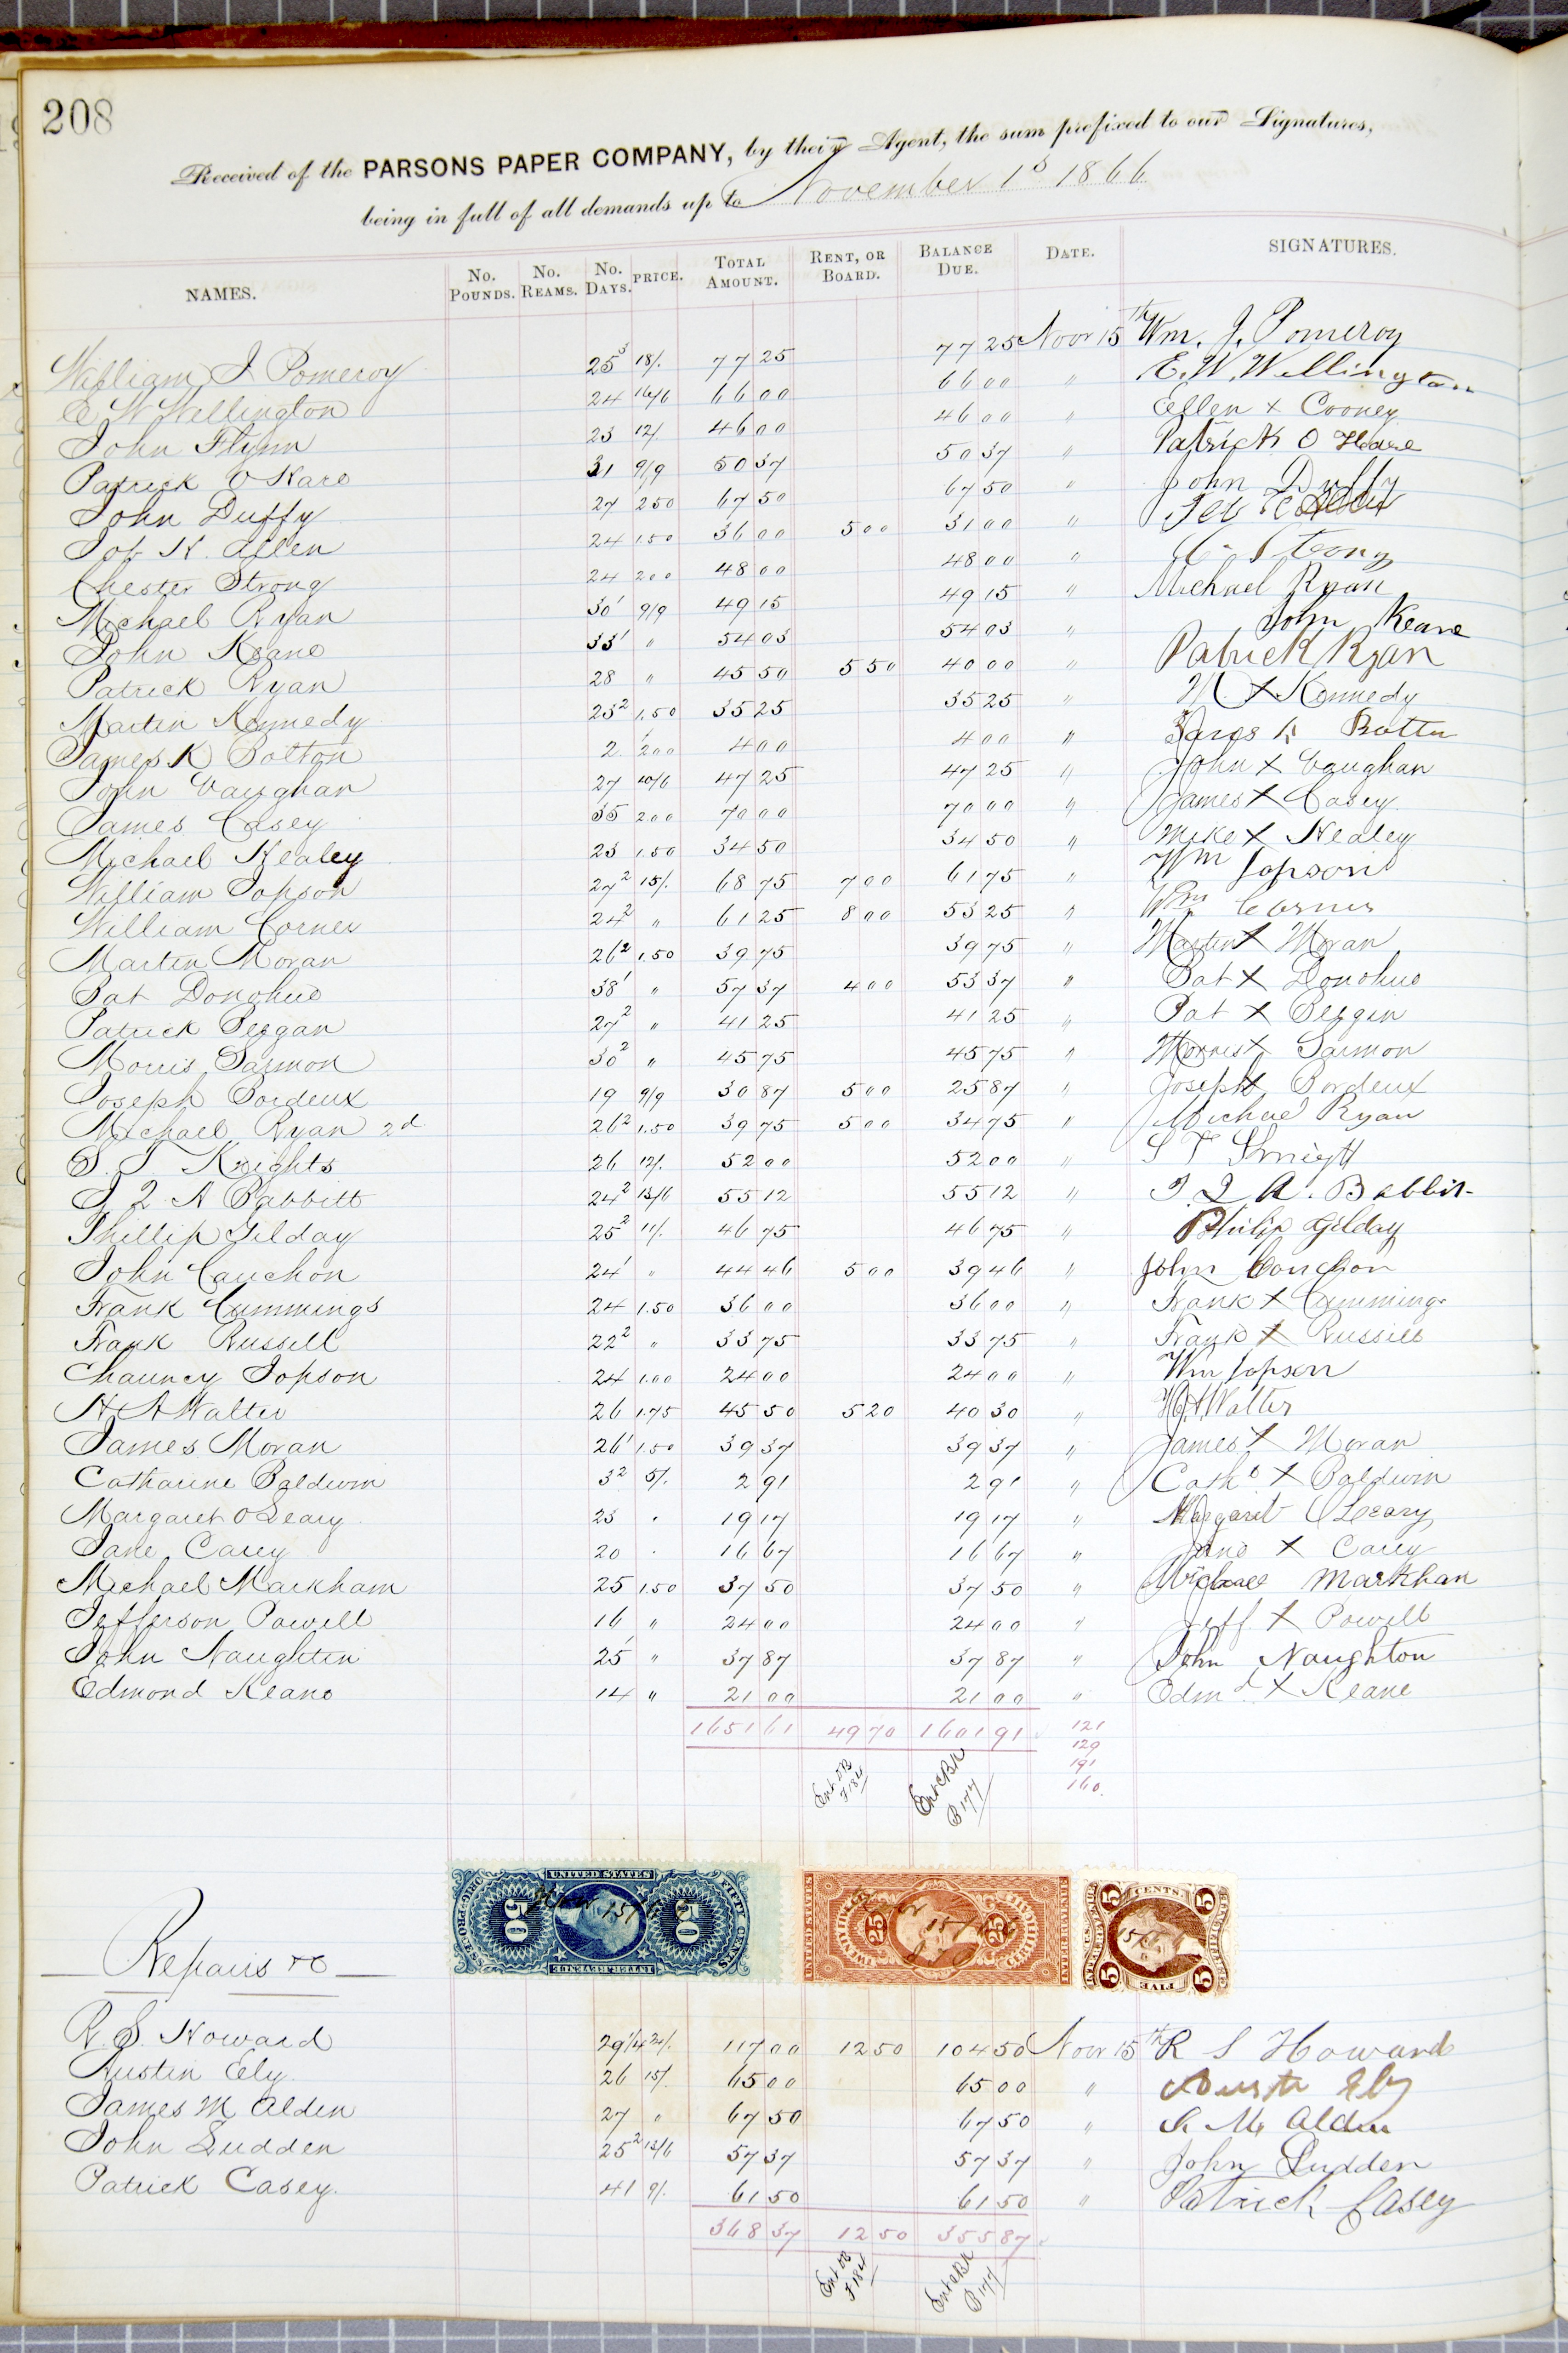 208
Received of the PARSONS PAPER COMPANY, by their Agent, the sum prefixed to our Signatures,
being in full of all demands up to November 1s 1866
NAMES. No. POUNDS. No. REAMS. No. DAYS. PRICE. TOTAL AMOUNT. RENT, OR BOARD. BALANCE DUE. DATE. SIGNATURES.
William J Pomeroy 25³ 18/. 77 25 77 25 Novr 15th Wm. J. Pomeroy
E W Wellington 24 16/6 66 00 66 00 " E. W. Wellington
John Flynn 23 12/. 46 00 46 00 " Ellen x Cooney
Patrick O Hare 31 9/9 50 37 50 37 " Patrick O Hare
John Duffy 27 250 67 50 67 50 " John Duffy
Job K. Allen 24 150 36 00 5 00 31 00 "
Chester Strong 24 200 48 00 48 00 " C. Strong
Michael Ryan 30¹ 9/9 49 15 49 15 " Michael Ryan
John Keane 33¹ " 54 03 54 03 " John Keane
Patrick Ryan 28 " 45 50 5 50 40 00 " Patrick Ryan
Martin Kennedy 23² 1.50 35 25 35 25 " M. x Kennedy
James K Bolton 2 200 4 00 4 00 " James K
John Vaughan 27 10/6 47 25 47 25 " John x Vaughan
James Casey 35 200 70 00 70 00 " James x Casey
Michael Healey 23 1.50 34 50 34 50 " Mike x Healey
William Jopson 27² 15/. 68 75 7 00 61 75 " Wm Jopson
William Corner 24² " 61 25 8 00 53 25 " Wm Corner
Martin Moran 26² 1.50 39 75 39 75 " Martin x Moran
Pat Donohue 38¹ " 57 37 4 00 53 37 " Pat x Donohue
Patrick Beggan 27² " 41 25 41 25 " Pat x Beggin
Morris Sarmon 30² " 45 75 45 75 " Morris x Sarmon
Joseph Bordeux 19 9/9 30 87 5 00 25 87 " Joseph x Bordeux
Michael Ryan 2d 26² 1.50 39 75 5 00 34 75 " Michael Ryan
S. T. Knights 26 12/. 52 00 52 00 " S T
J Q A Babbitt 24² 13/6 55 12 55 12 " J. Q. A. Babbit
Phillip Gilday 25² 11/. 46 75 46 75 " Philip Gilday
John Cauchon 24¹ " 44 46 5 00 39 46 " John Couchon
Frank Cummings 24 1.50 36 00 36 00 " Frank x Cummings
Frank Russell 22² " 33 75 33 75 " Frank x Russell
Chauncy Jopson 24 1.00 24 00 24 00 " Wm Jopson
H A Walter 26 1.75 45 50 5 20 40 30 " H. A. Walter
James Moran 26¹ 1.50 39 37 39 37 " James x Moran
Catharine Baldwin 3² 5/. 2 91 2 91 " Cathe x Baldwin
Margaret O Leary 23 " 19 17 19 17 " Margaret O Leary
Jane Carey 20 " 16 67 16 67 " Jane x Carey
Michael Markham 25 1.50 37 50 37 50 " Michael Markhan
Jefferson Powell 16 " 24 00 24 00 " Jeff. x Powell
John Naughtin 25¹ " 37 87 37 87 " John Naughton
Edmond Keane 14 " 21 00 21 00 " Edmd x Keane
1651 61 49 70 1601 91 121
129
191
160.
Ent DB F 184 Ent CBK P 177
UNITED STATES INTER. REVENUE FIFTY CENTS 50 50 Nov 15/66
UNITED STATES INTER. REVENUE 25 25 Nov 15/66
U.S. INTER. REVENUE FIVE CENTS 5 5 5 5 15/66
Repairs &c
R. S. Howard 29 1/4 24/. 117 00 12 50 104 50 Novr 15th R S Howard
Austin Ely 26 15/. 65 00 65 00 " Austin Ely
James M Alden 27 " 67 50 67 50 " J. M. Alden
John Ludden 25² 13/6 57 37 57 37 " John Ludden
Patrick Casey 41 9/. 61 50 61 50 " Patrick Casey
368 37 12 50 355 87
Ent DB F 184 Ent CBK P 177